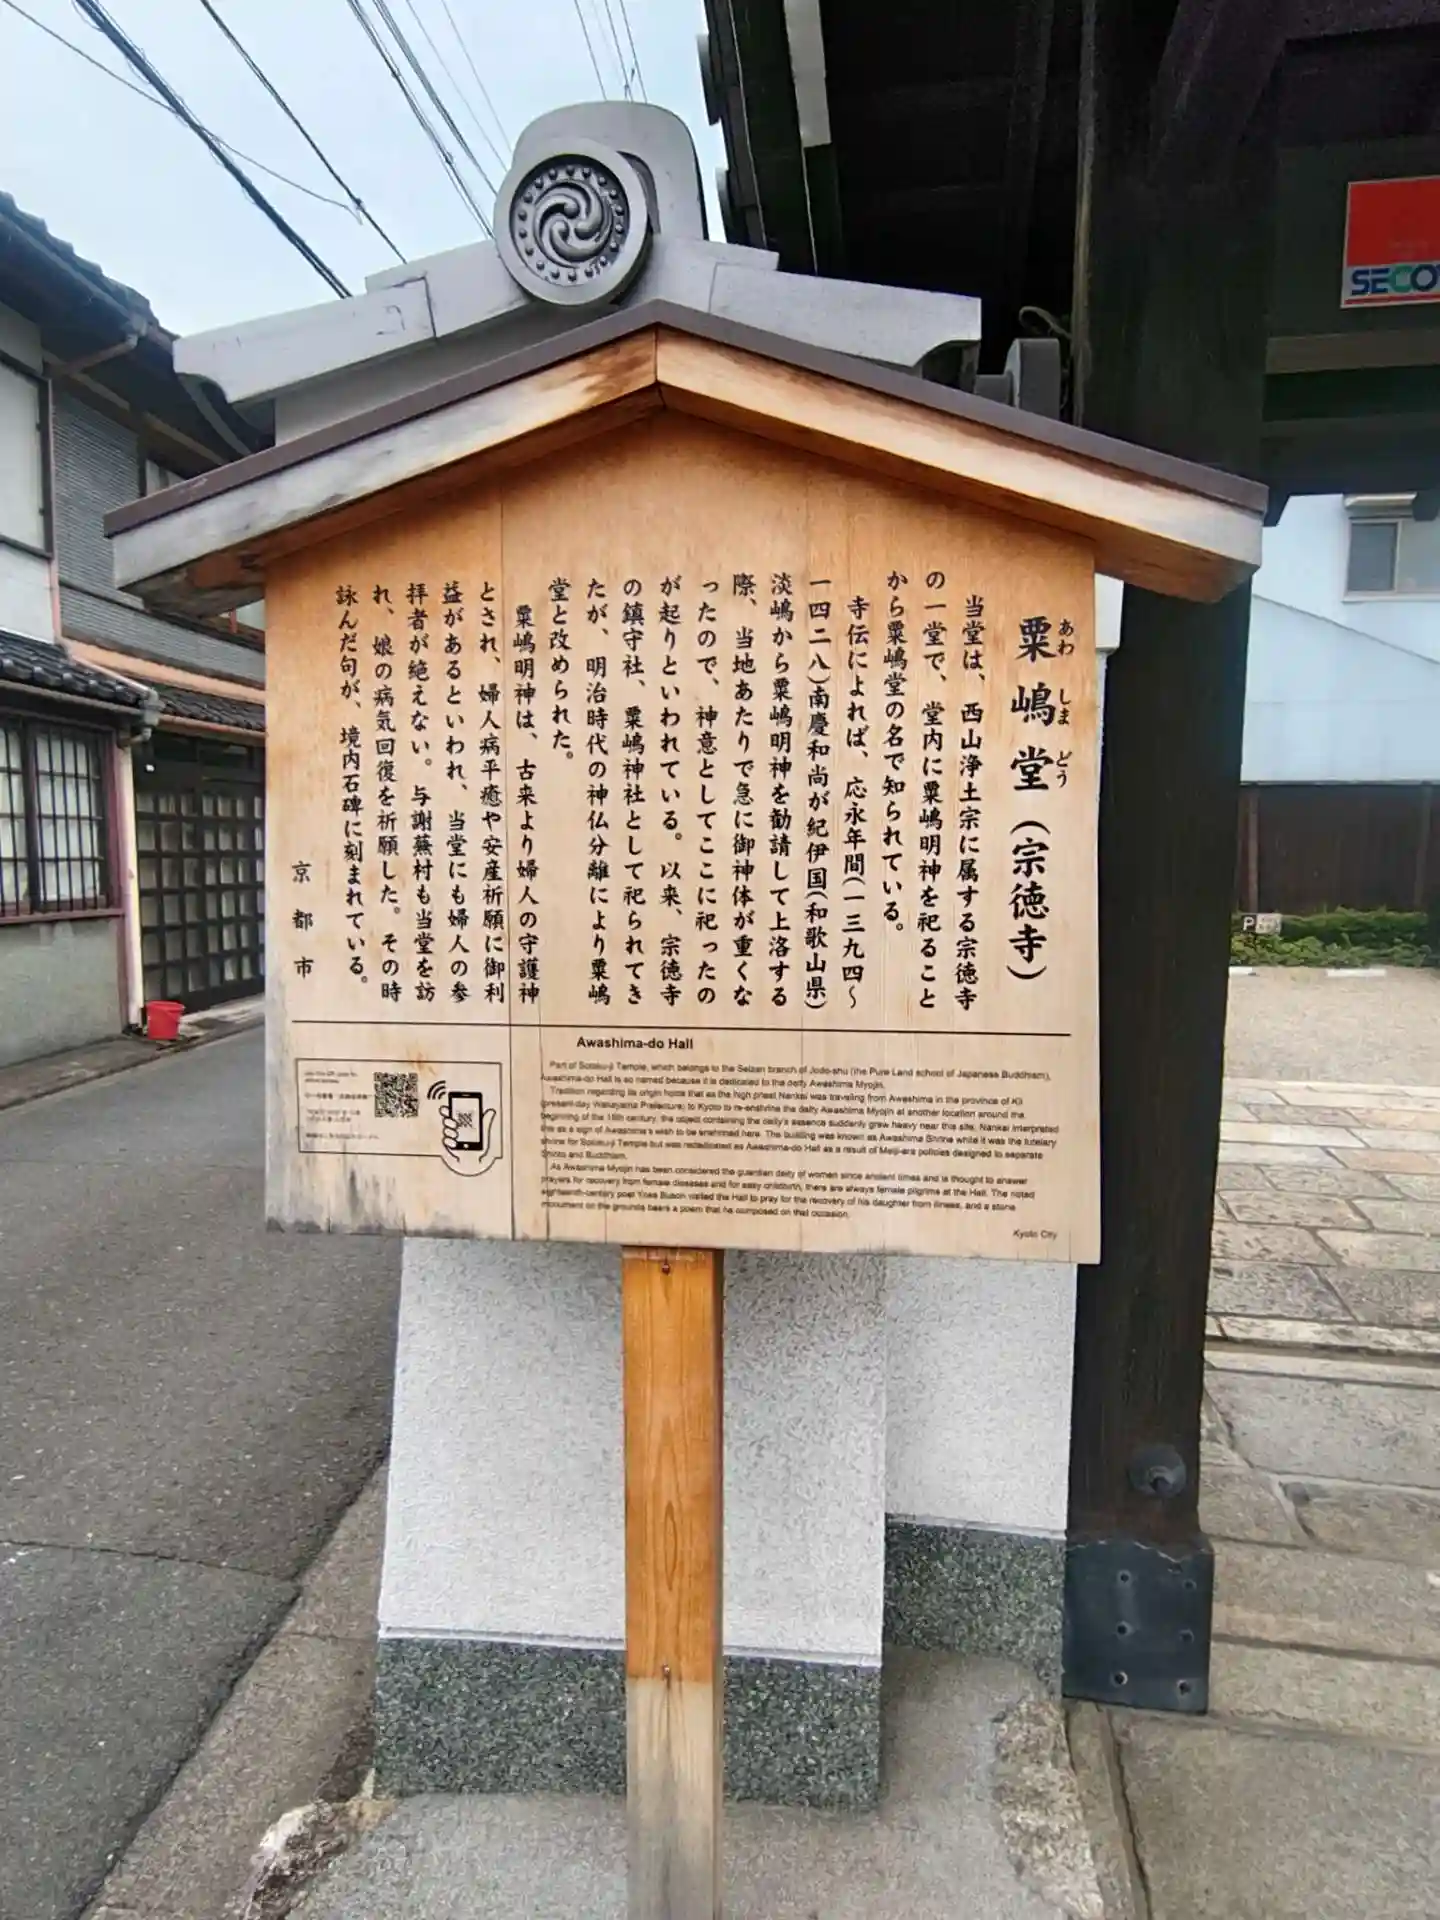 粟嶋堂(宗徳寺)
あわしまどう
当堂は、西山浄土宗に属する宗徳寺
の一堂で、堂内に粟嶋明神を祀ること
から粟嶋堂の名で知られている。
寺伝によれば、応永年間(一三九四～
一四二八)南慶和尚が紀伊国(和歌山県)
淡嶋から粟嶋明神を勧請して上洛する
際、当地あたりで急に御神体が重くな
ったので、神意としてここに祀ったの
が起りといわれている。以来、宗徳寺
の鎮守社、粟嶋神社として祀られてき
たが、明治時代の神仏分離により粟嶋
堂と改められた。
粟嶋明神は、古来より婦人の守護神
とされ、婦人病平癒や安産祈願に御利
益があるといわれ、当堂にも婦人の参
拝者が絶えない。与謝蕪村も当堂を訪
れ、娘の病気回復を祈願した。その時
詠んだ句が、境内石碑に刻まれている。
京都市
Awashima-do Hall
Part of Sotokuji Temple, which belongs to the Seizan branch of Jodo-shu (the Pure Land school of Japanese Buddhism),
Awashima-do Hall is so named because it is dedicated to the deity Awashima Myojin.
Tradition regarding its origin holds that as the high priest Nankei was traveling from Awashima in the province of Kii
(present-day Wakayama Prefecture) to Kyoto to re-enshrine the deity Awashima Myojin at another location around the
beginning of the 15th century, the object containing the deity's essence suddenly grew heavy near this site. Nankei interpreted
this as a sign of Awashima's wish to be enshrined here. The building was known as Awashima Shrine while it was the tutelary
shrine for Sotokuji Temple but was rededicated as Awashima-do Hall as a result of Meiji-era policies designed to separate
Shinto and Buddhism.
As Awashima Myojin has been considered the guardian deity of women since ancient times and is thought to answer
prayers for recovery from female diseases and for easy childbirth, there are always female pilgrims at the Hall. The noted
eighteenth-century poet Yosa Buson visited the Hall to pray for the recovery of his daughter from illness, and a stone
monument on the grounds bears a poem that he composed on that occasion.
Kyoto City
SECO
P